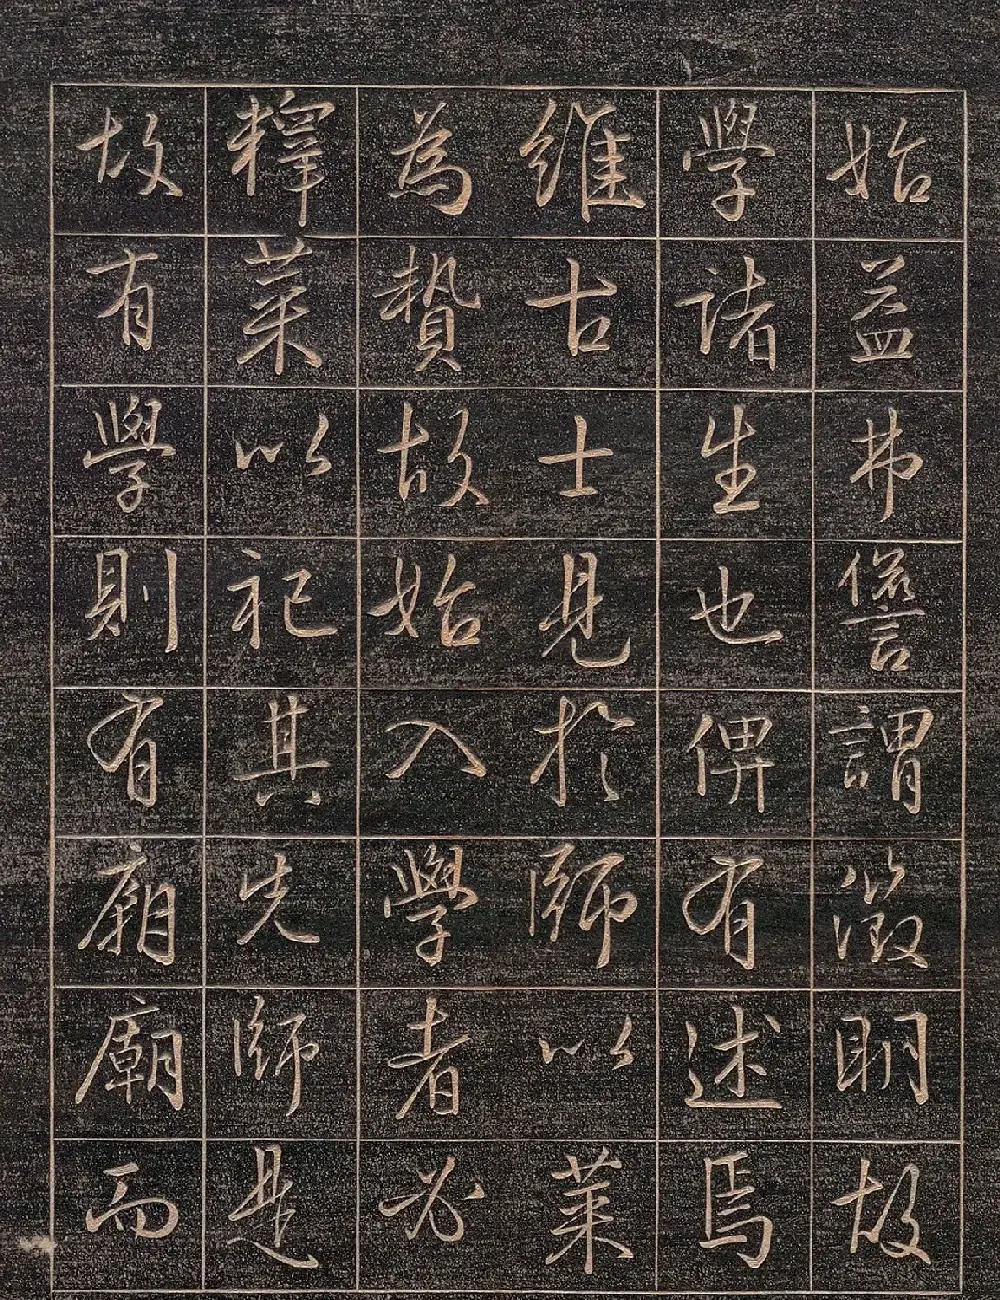 始益弗讆謂徵明故
學諸生也俾有述焉
維古士見於師以菜
為贄故始入學者必
釋菜以祀其先師是
故有學則有廟廟而